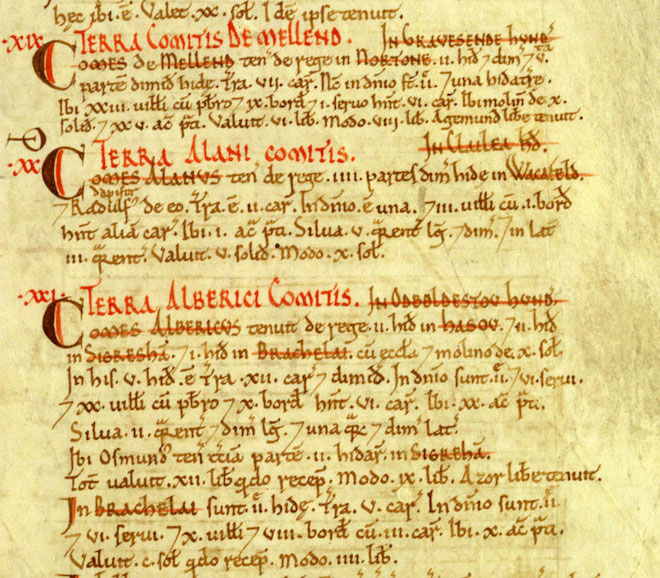 hęc ibi .ē. Valet .xx. sol. Idē ipse tenuit.
.XIX. TERRA COMITIS DE MELLEND. IN GRAVESENDE HVND'
COMES DE MELLEND ten' de rege in NORTONE .ii. hid' 7 dim' 7 .v.
partē dimid' hide. T'ra .vii. car'. Nc̄ in dn̄io st' .ii. 7 una hida t'rę.
Ibi .xxiii. uill'i cū p̄bro 7 ix. bord' 7 i. seruo hn̄t .vi. car'. Ibi molin' de .x.
solid'. 7 xx.v. ac' p̄ti. Valuit .vi. lib'. Modo .viii. lib'. Agemund libe tenuit.
.XX. TERRA ALANI COMITIS. IN CLAILEA HD'.
COMES ALANVS ten' de rege .iiii. partes dim' hide in WACAFELD.
dapifer
7 Radulf' de eo. T'ra .ē. ii. car'. In dn̄io .ē una. 7 iii. uill'i cū .i. bord'
hn̄t aliā car'. Ibi .i. ac' p̄ti. Silua .v. qrent' lḡ. 7 dim'. 7 in lat'
iii. qrent'. Valuit .v. solid'. Modo .x. sol'.
.XXI. TERRA ALBERICI COMITIS. IN ODBOLDESTOU HVND'.
COMES ALBERICVS tenuit de rege .ii. hid' in HASOU. 7 ii. hid'
in SIGRESHĀ. 7 i. hid' in BRACHELAI. cū eccl'a 7 molino de .x. sol'.
In his .v. hid' .ē t'ra .xii. car' 7 dimid'. In dn̄io sunt .ii. 7 vi. serui.
7 xx. uill'i cū p̄bro 7 x. bord' hn̄t .vi. car'. Ibi .xx. ac' p̄ti.
Silua .ii. qrent' 7 dim' lḡ. 7 una qr' 7 dim' lat'.
Ibi Osmund' ten' t'ciā partē .ii. hidar' in SIGREHĀ.
Tot' valuit .xii. lib' qdo recep'. Modo .ix. lib'. Azor libe tenuit.
In BRACHELAI sunt .ii. hidę. T'ra .v. car'. In dn̄io sunt .ii.
7 vi. serui. 7 x. uill'i 7 viii. bord' cū .iii. car'. Ibi .x. ac' p̄ti.
Valuit .c. sol' qdo recep'. Modo .iiii. lib'.